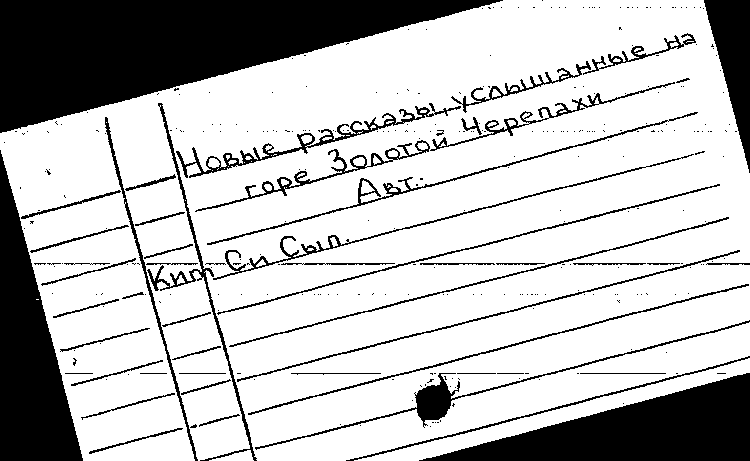 Новые рассказы, услышанные на
горе Золотой Черепахи
Авт.:
Ким Си Сып.